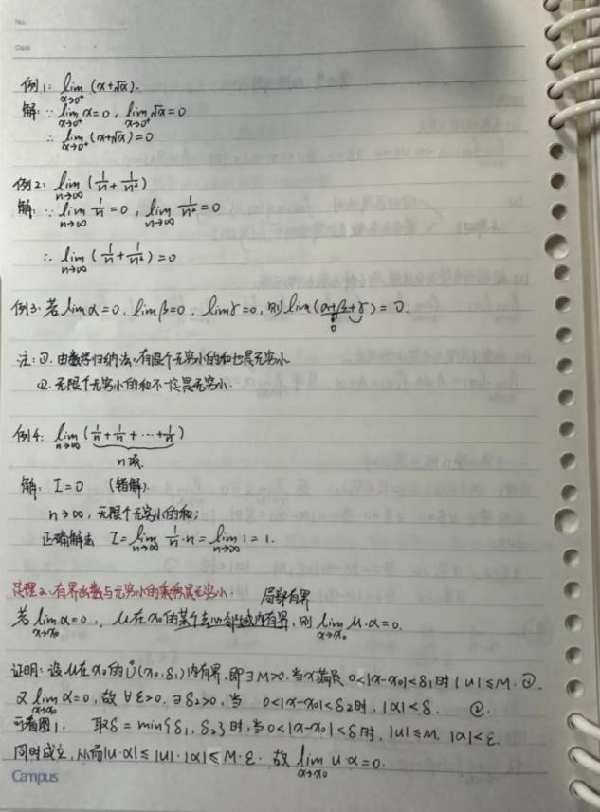 No.
Date
例1: lim_{x→0⁺} (x+√x).
解: ∵ lim_{x→0⁺} x=0, lim_{x→0⁺} √x=0
∴ lim_{x→0⁺} (x+√x)=0
例2: lim_{n→∞} (1/n + 1/n²)
解: ∵ lim_{n→∞} 1/n =0, lim_{n→∞} 1/n² =0
∴ lim_{n→∞} (1/n + 1/n²)=0
例3. 若 lim α=0, lim β=0, lim γ=0, 则 lim (α+β+γ) = 0.
0
注: ①. 由数学归纳法, 有限个无穷小的和也是无穷小.
②. 无限个无穷小的和不一定是无穷小.
例4: lim_{n→∞} (1/n + 1/n + ⋯ + 1/n)
n项
解: I=0 (错解).
n→∞, 无限个无穷小的和;
正确解法 I = lim_{n→∞} 1/n · n = lim_{n→∞} 1 = 1.
定理2. 有界函数与无穷小的乘积是无穷小. 局部有界
若 lim_{x→x₀} α=0, u在x₀的某个去心邻域内有界, 则 lim_{x→x₀} u·α=0.
证明: 设u在x₀的Ů(x₀,δ₁)内有界, 即∃M>0, 当x满足 0<|x-x₀|<δ₁时 |u|≤M. ①.
又 lim_{x→x₀} α=0, 故 ∀ε>0, ∃δ₂>0, 当 0<|x-x₀|<δ₂时, |α|<ε. ②.
可看图1. 取δ = min{δ₁, δ₂}时, 当0<|x-x₀|<δ时, |u|≤M, |α|<ε.
同时成立, 从而|u·α|≤|u|·|α|≤M·ε. 故 lim_{x→x₀} u·α=0.
Campus